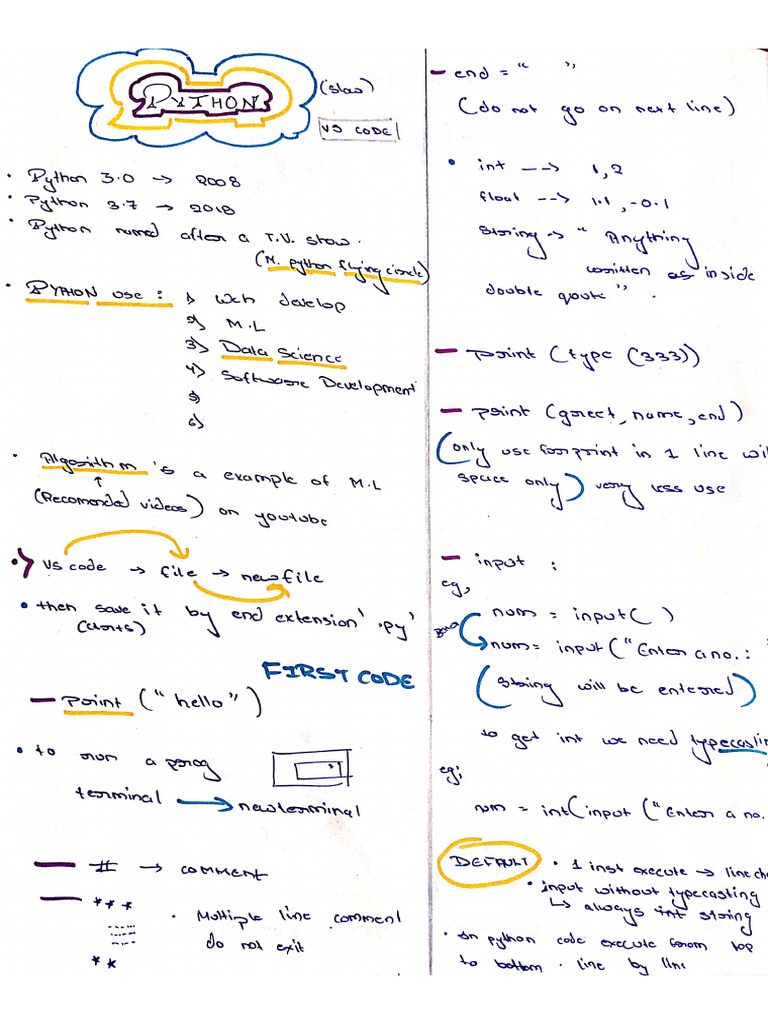 PYTHON
(slow)
VS CODE
• Python 3.0 → 2008
• Python 3.7 → 2018
• Python named after a T.V. show.
(M. python flying circle)
• PYTHON use : 1) Web develop
2) M.L
3) Data Science
4) Software Development
5)
6)
• Algorithm 's a example of M.L
↑
(Recomended videos) on youtube
•> VS code → file → newfile
• then save it by end extension '.py'
(Ctrl+S)
FIRST CODE
— Print ("hello")
• to run a prog
terminal → newterminal
— # → COMMENT
— ***
• Multiple line comment
do not exit
**
— end = " "
(do not go on next line)
• int --→ 1,2
float --→ 1.1, -0.1
String → " Anything
written as inside
double qoute" .
— print (type (333))
— print (greet, name, end)
(only use for print in 1 line wi
space only) very less use
— input :
eg,
num = input( )
num= input("Enter a no.:
(String will be entered)
to get int we need typecastin
eg;
num = int(input ("Enter a no.
DEFAULT • 1 inst execute → line ch
• input without typecasting
↳ always int string
• In python code execute from top
to bottom . line by line